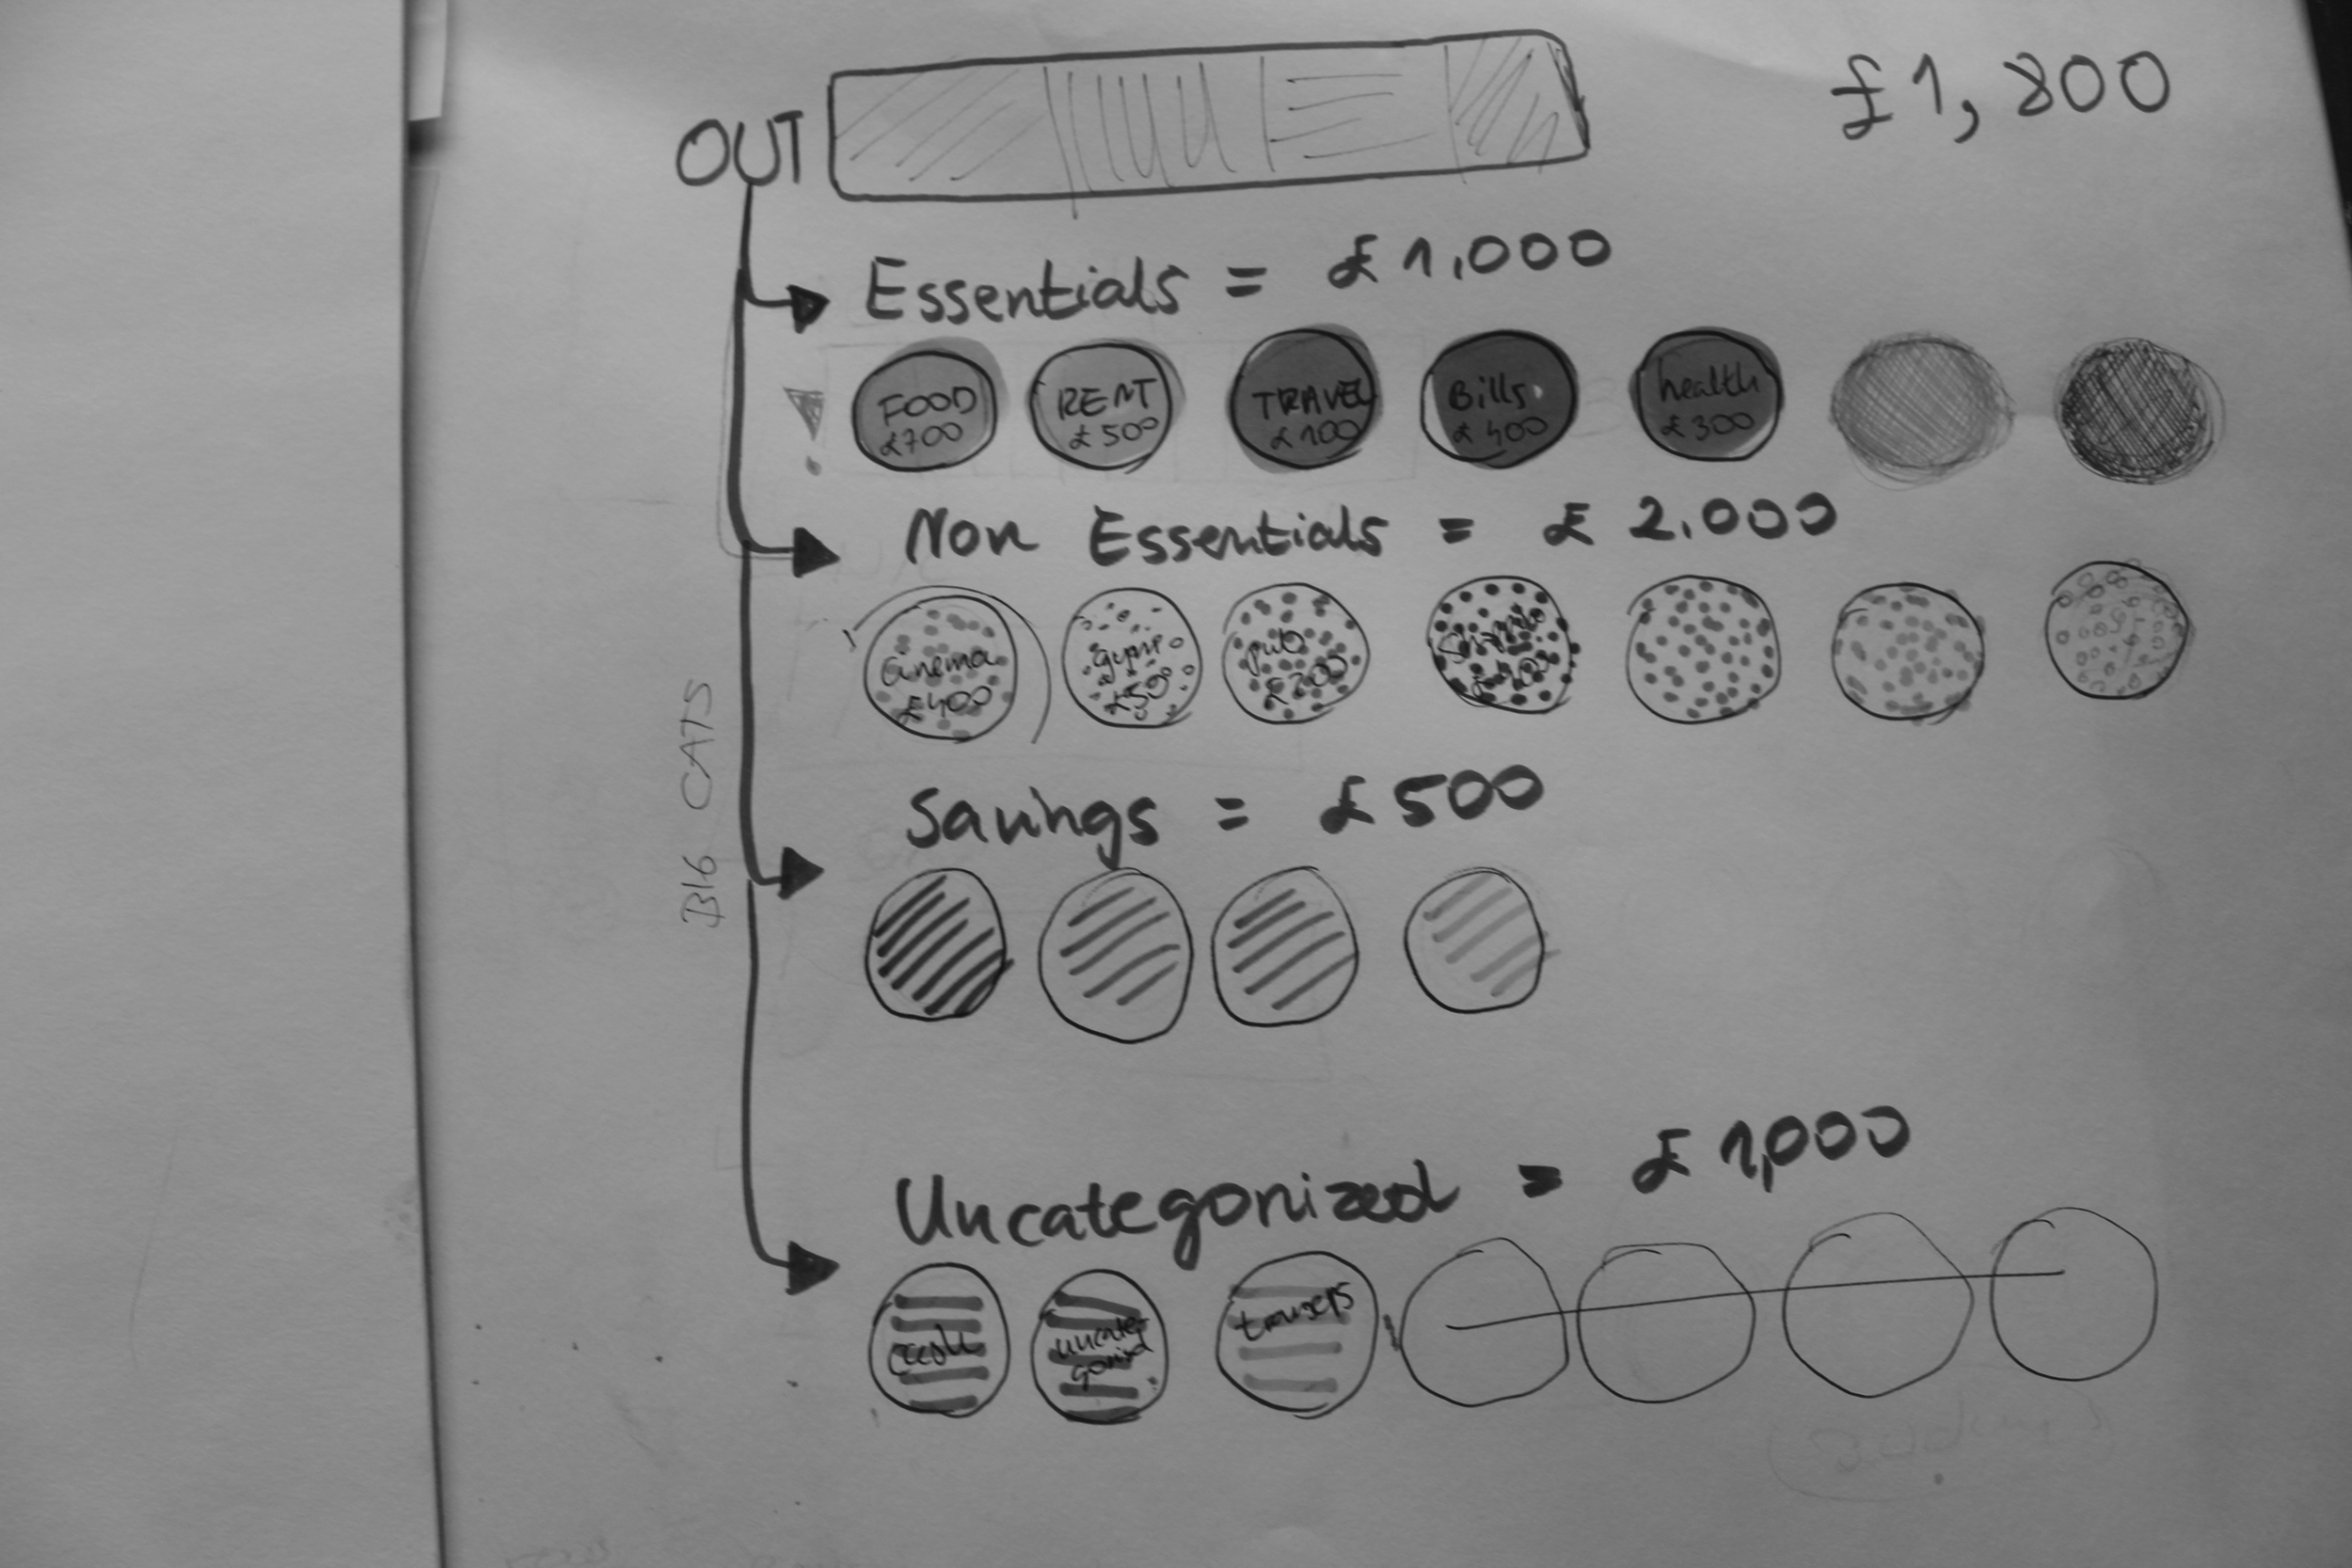 OUT £1,800
Essentials = £1,000
FOOD £700
RENT £500
TRAVEL £100
Bills £400
health £300
Non Essentials = £2.000
Cinema £400
gym £50
pub £200
Savings = £500
BIG CATS
Uncategorized = £1,000
cash
uncate-
gorized